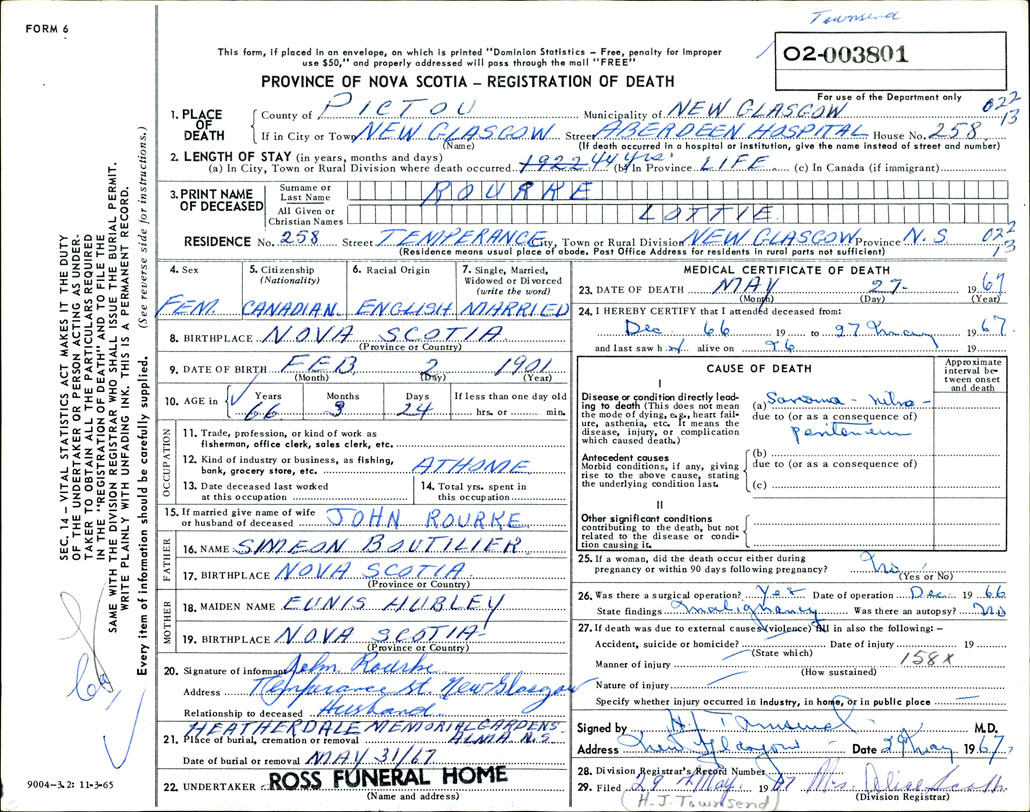 Townsend
FORM 6
This form, if placed in an envelope, on which is printed "Dominion Statistics – Free, penalty for improper
use $50," and properly addressed will pass through the mail "FREE"
O2-003801
PROVINCE OF NOVA SCOTIA – REGISTRATION OF DEATH
For use of the Department only
1. PLACE OF DEATH County of PICTOU Municipality of NEW GLASGOW 022 13
If in City or Town NEW GLASGOW Street ABERDEEN HOSPITAL House No. 258
(Name) (If death occurred in a hospital or institution, give the name instead of street and number)
2. LENGTH OF STAY (in years, months and days)
(a) In City, Town or Rural Division where death occurred 1922 44 yrs. (b) In Province LIFE (c) In Canada (if immigrant)
3. PRINT NAME OF DECEASED Surname or Last Name ROURKE
All Given or Christian Names LOTTIE
RESIDENCE No. 258 Street TEMPERANCE City, Town or Rural Division NEW GLASGOW Province N.S. 022 13
(Residence means usual place of abode. Post Office Address for residents in rural parts not sufficient)
4. Sex FEM.
5. Citizenship (Nationality) CANADIAN.
6. Racial Origin ENGLISH
7. Single, Married, Widowed or Divorced (write the word) MARRIED
8. BIRTHPLACE NOVA SCOTIA
(Province or Country)
9. DATE OF BIRTH FEB. 2 1901
(Month) (Day) (Year)
10. AGE in Years 66 Months 3 Days 24 If less than one day old hrs. or min.
OCCUPATION
11. Trade, profession, or kind of work as
fisherman, office clerk, sales clerk, etc.
12. Kind of industry or business, as fishing,
bank, grocery store, etc. AT HOME
13. Date deceased last worked
at this occupation
14. Total yrs. spent in
this occupation
15. If married give name of wife
or husband of deceased JOHN ROURKE
FATHER
16. NAME SIMEON BOUTILIER
17. BIRTHPLACE NOVA SCOTIA
(Province or Country)
MOTHER
18. MAIDEN NAME EUNIS HUBLEY
19. BIRTHPLACE NOVA SCOTIA
(Province or Country)
20. Signature of informant John Rourke
Address Temperance St. New Glasgow
Relationship to deceased Husband
HEATHERDALE MEMORIAL GARDENS
21. Place of burial, cremation or removal ALMA N.S
Date of burial or removal MAY 31/67
22. UNDERTAKER ROSS FUNERAL HOME
(Name and address)
MEDICAL CERTIFICATE OF DEATH
23. DATE OF DEATH MAY 27 1967
(Month) (Day) (Year)
24. I HEREBY CERTIFY that I attended deceased from:
Dec 66 19 to 27 1967
and last saw h er alive on 26 19
CAUSE OF DEATH
Approximate interval between onset and death
I
Disease or condition directly leading to death (This does not mean the mode of dying, e.g., heart failure, asthenia, etc. It means the disease, injury, or complication which caused death.)
(a) Sarcoma - retro -
due to (or as a consequence of)
peritoneum
Antecedent causes
Morbid conditions, if any, giving rise to the above cause, stating the underlying condition last.
(b)
due to (or as a consequence of)
(c)
II
Other significant conditions
contributing to the death, but not related to the disease or condition causing it.
25. If a woman, did the death occur either during
pregnancy or within 90 days following pregnancy? No
(Yes or No)
26. Was there a surgical operation? Yes Date of operation Dec. 1966
State findings malignancy Was there an autopsy? no
27. If death was due to external causes (violence) fill in also the following: –
Accident, suicide or homicide? Date of injury 19
(State which)
Manner of injury 158X
(How sustained)
Nature of injury
Specify whether injury occurred in industry, in home, or in public place
Signed by H J Townsend M.D.
Address New Glasgow Date 29 May 1967
28. Division Registrar's Record Number
29. Filed 29th May 1967 Mrs. Alice Scott
(H.J. Townsend) (Division Registrar)
SEC. 14 – VITAL STATISTICS ACT MAKES IT THE DUTY
OF THE UNDERTAKER OR PERSON ACTING AS UNDER-
TAKER TO OBTAIN ALL THE PARTICULARS REQUIRED
IN THE "REGISTRATION OF DEATH" AND TO FILE THE
SAME WITH THE DIVISION REGISTRAR WHO SHALL ISSUE BURIAL PERMIT.
WRITE PLAINLY WITH UNFADING INK. THIS IS A PERMANENT RECORD.
Every item of information should be carefully supplied. (See reverse side for instructions.)
9004-3.2: 11-3-65